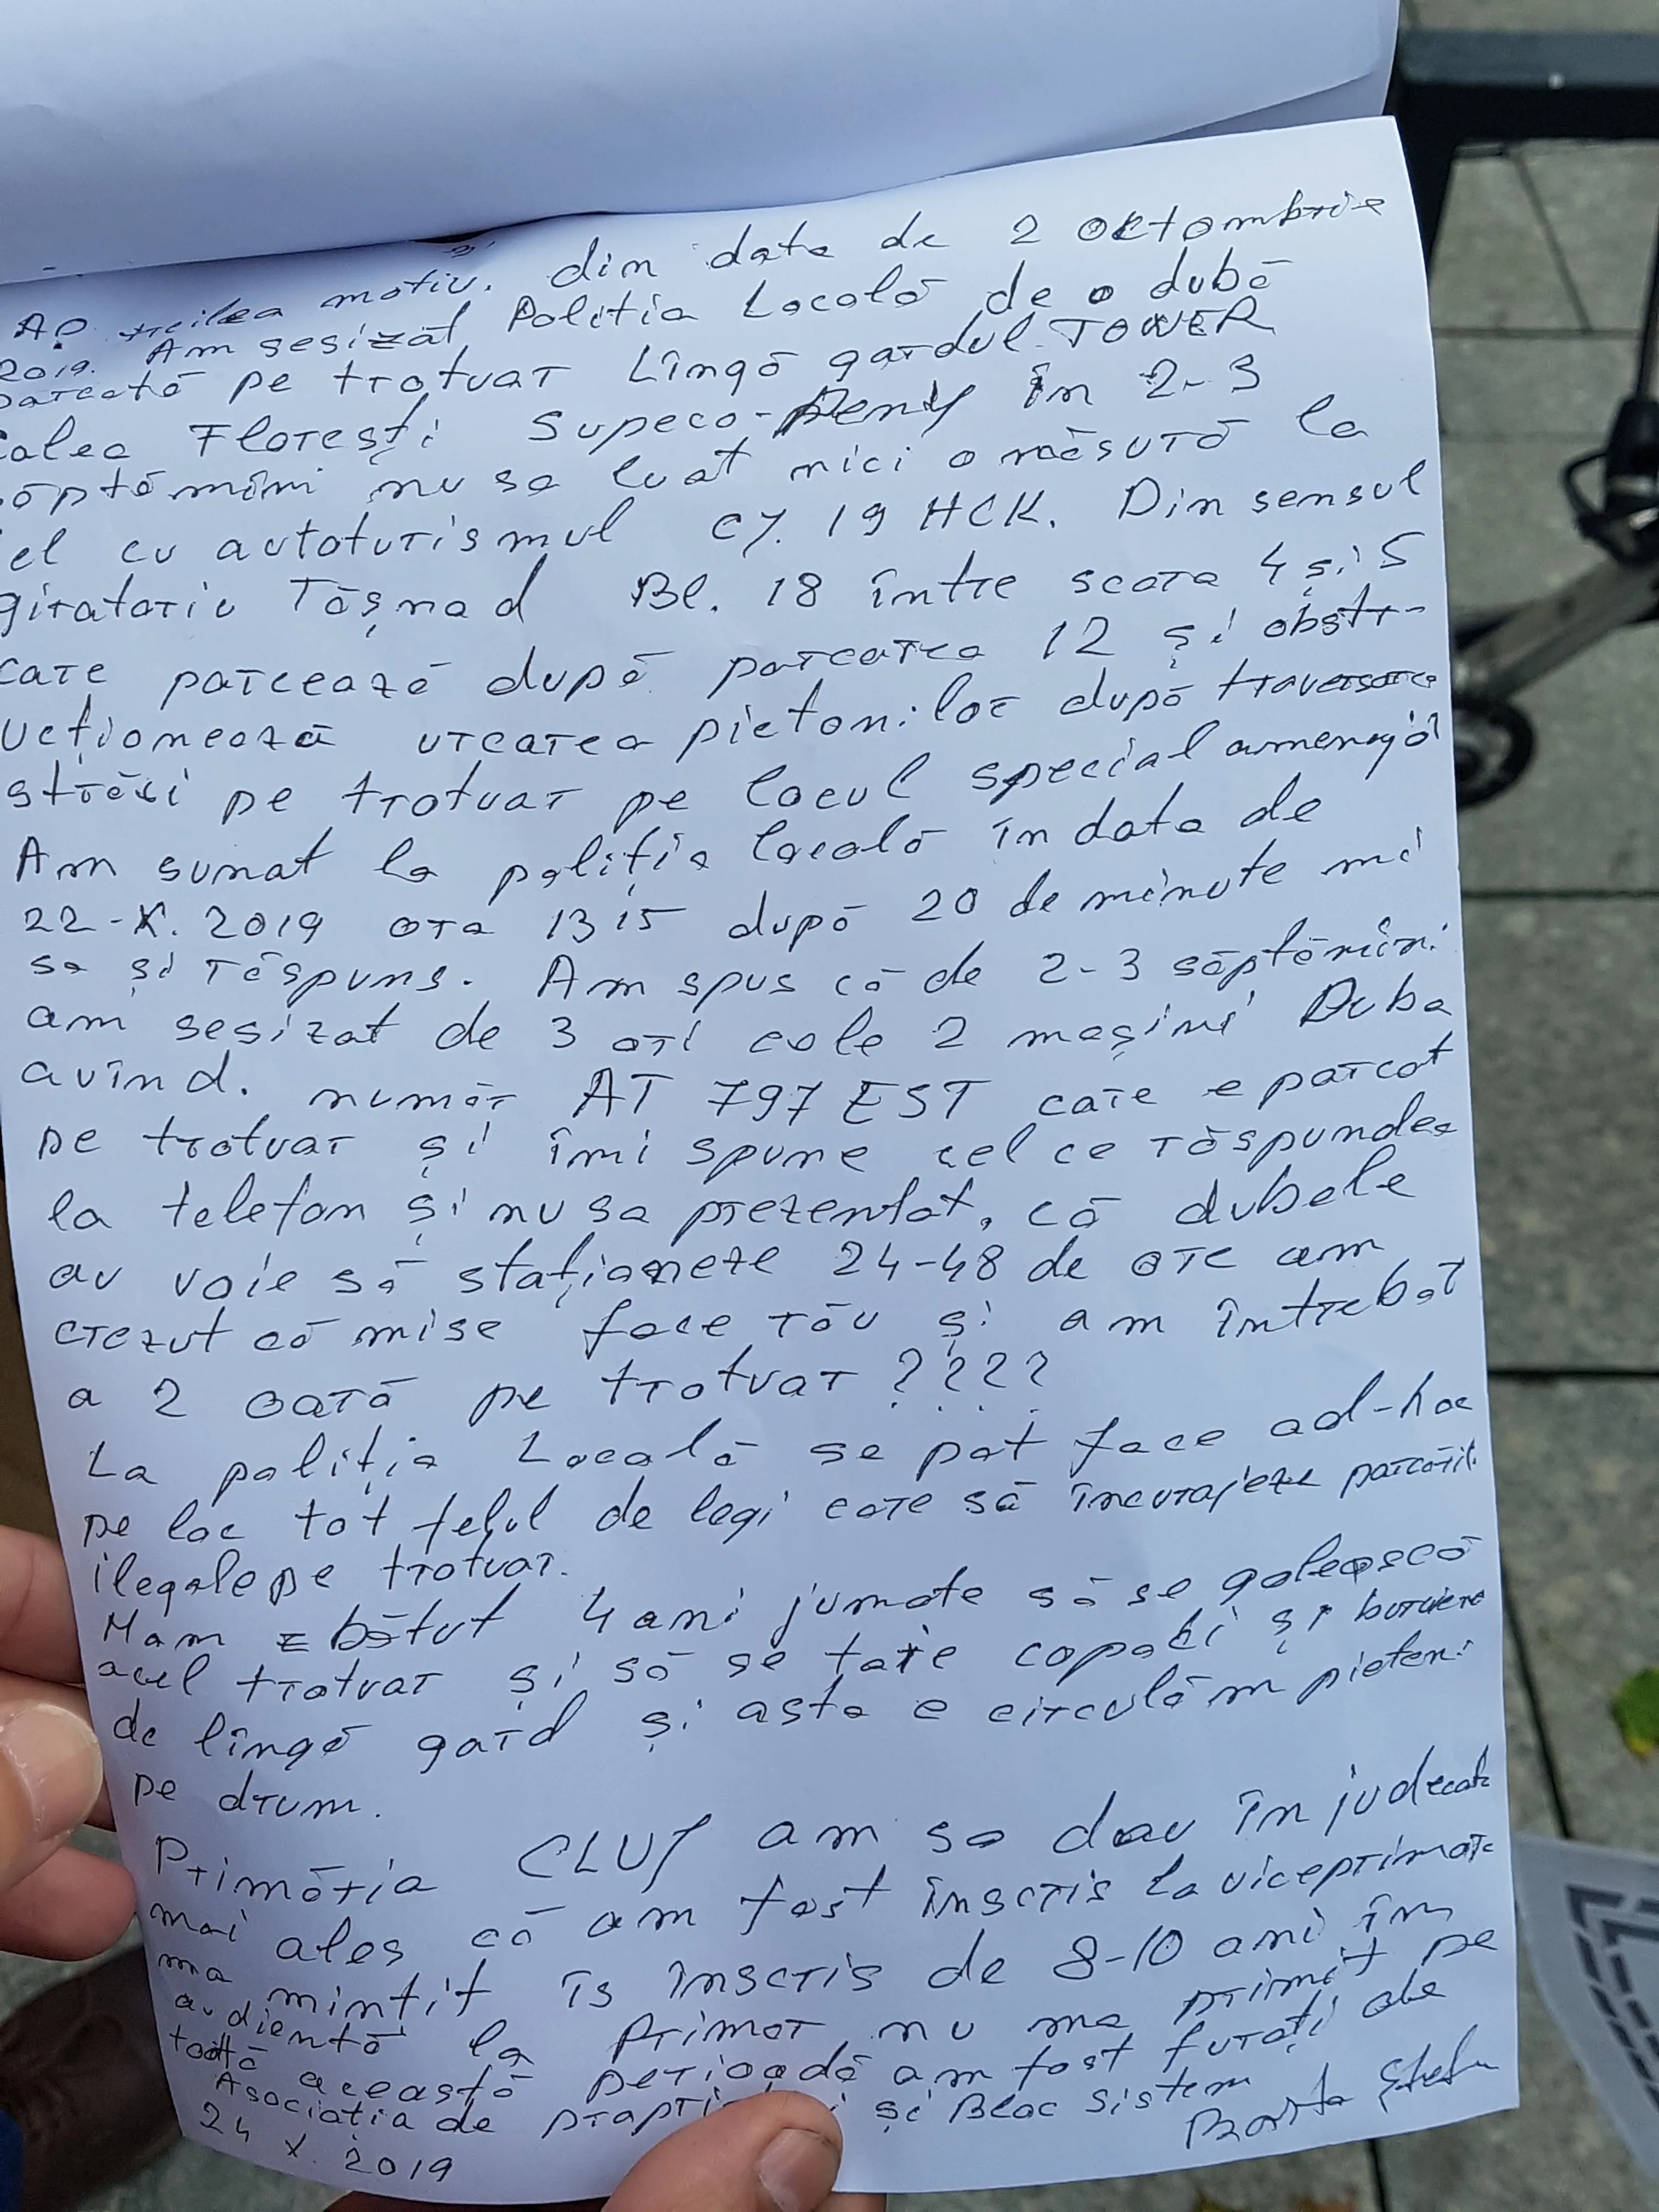 Ap. treilea motiv. din data de 2 octombrie
2019. Am sesizat Politia Locală de o dubă
parcată pe trotuar Lîngă gardul TOWER
calea Florești Supeco-Penny în 2-3
săptămîni nu sa luat nici o măsură la
el cu autoturismul CJ. 19 HCK. Din sensul
giratoriu Tășnad Bl. 18 între scara 4 și 5
care parcează după parcarea 12 și obstr-
ucționează urcarea pietonilor după traversarea
străzi pe trotuar pe locul special amenajat
Am sunat la poliția locală în data de
22-X. 2019 ora 13 15 după 20 de minute mi
sa și răspuns. Am spus că de 2-3 săptămîni
am sesizat de 3 ori cele 2 mașini Duba
avînd. număr AT 797 EST care e parcat
pe trotuar și îmi spune cel ce răspundea
la telefon și nu sa prezentat, că dubele
au voie să staționeze 24-48 de ore am
crezut că mise face rău și am întrebat
a 2 oară pe trotuar ????
La poliția Locală se pot face ad-hoc
pe loc tot felul de legi care să încurajeze parcările
ilegale pe trotuar.
Mam zbătut 4 ani jumate să se golească
acel trotuar și să se taie copaci și buruiene
de lîngă gard și asta e circulăm pietoni
pe drum.
Primăria CLUJ am so dau în judecată
mai ales că am fost înscris la viceprimar
ma mințit îs înscris de 8-10 ani în
audiență la Primar nu ma primit pe
toată această perioadă am fost furați de
Asociația de și Bloc sistem
24 X. 2019